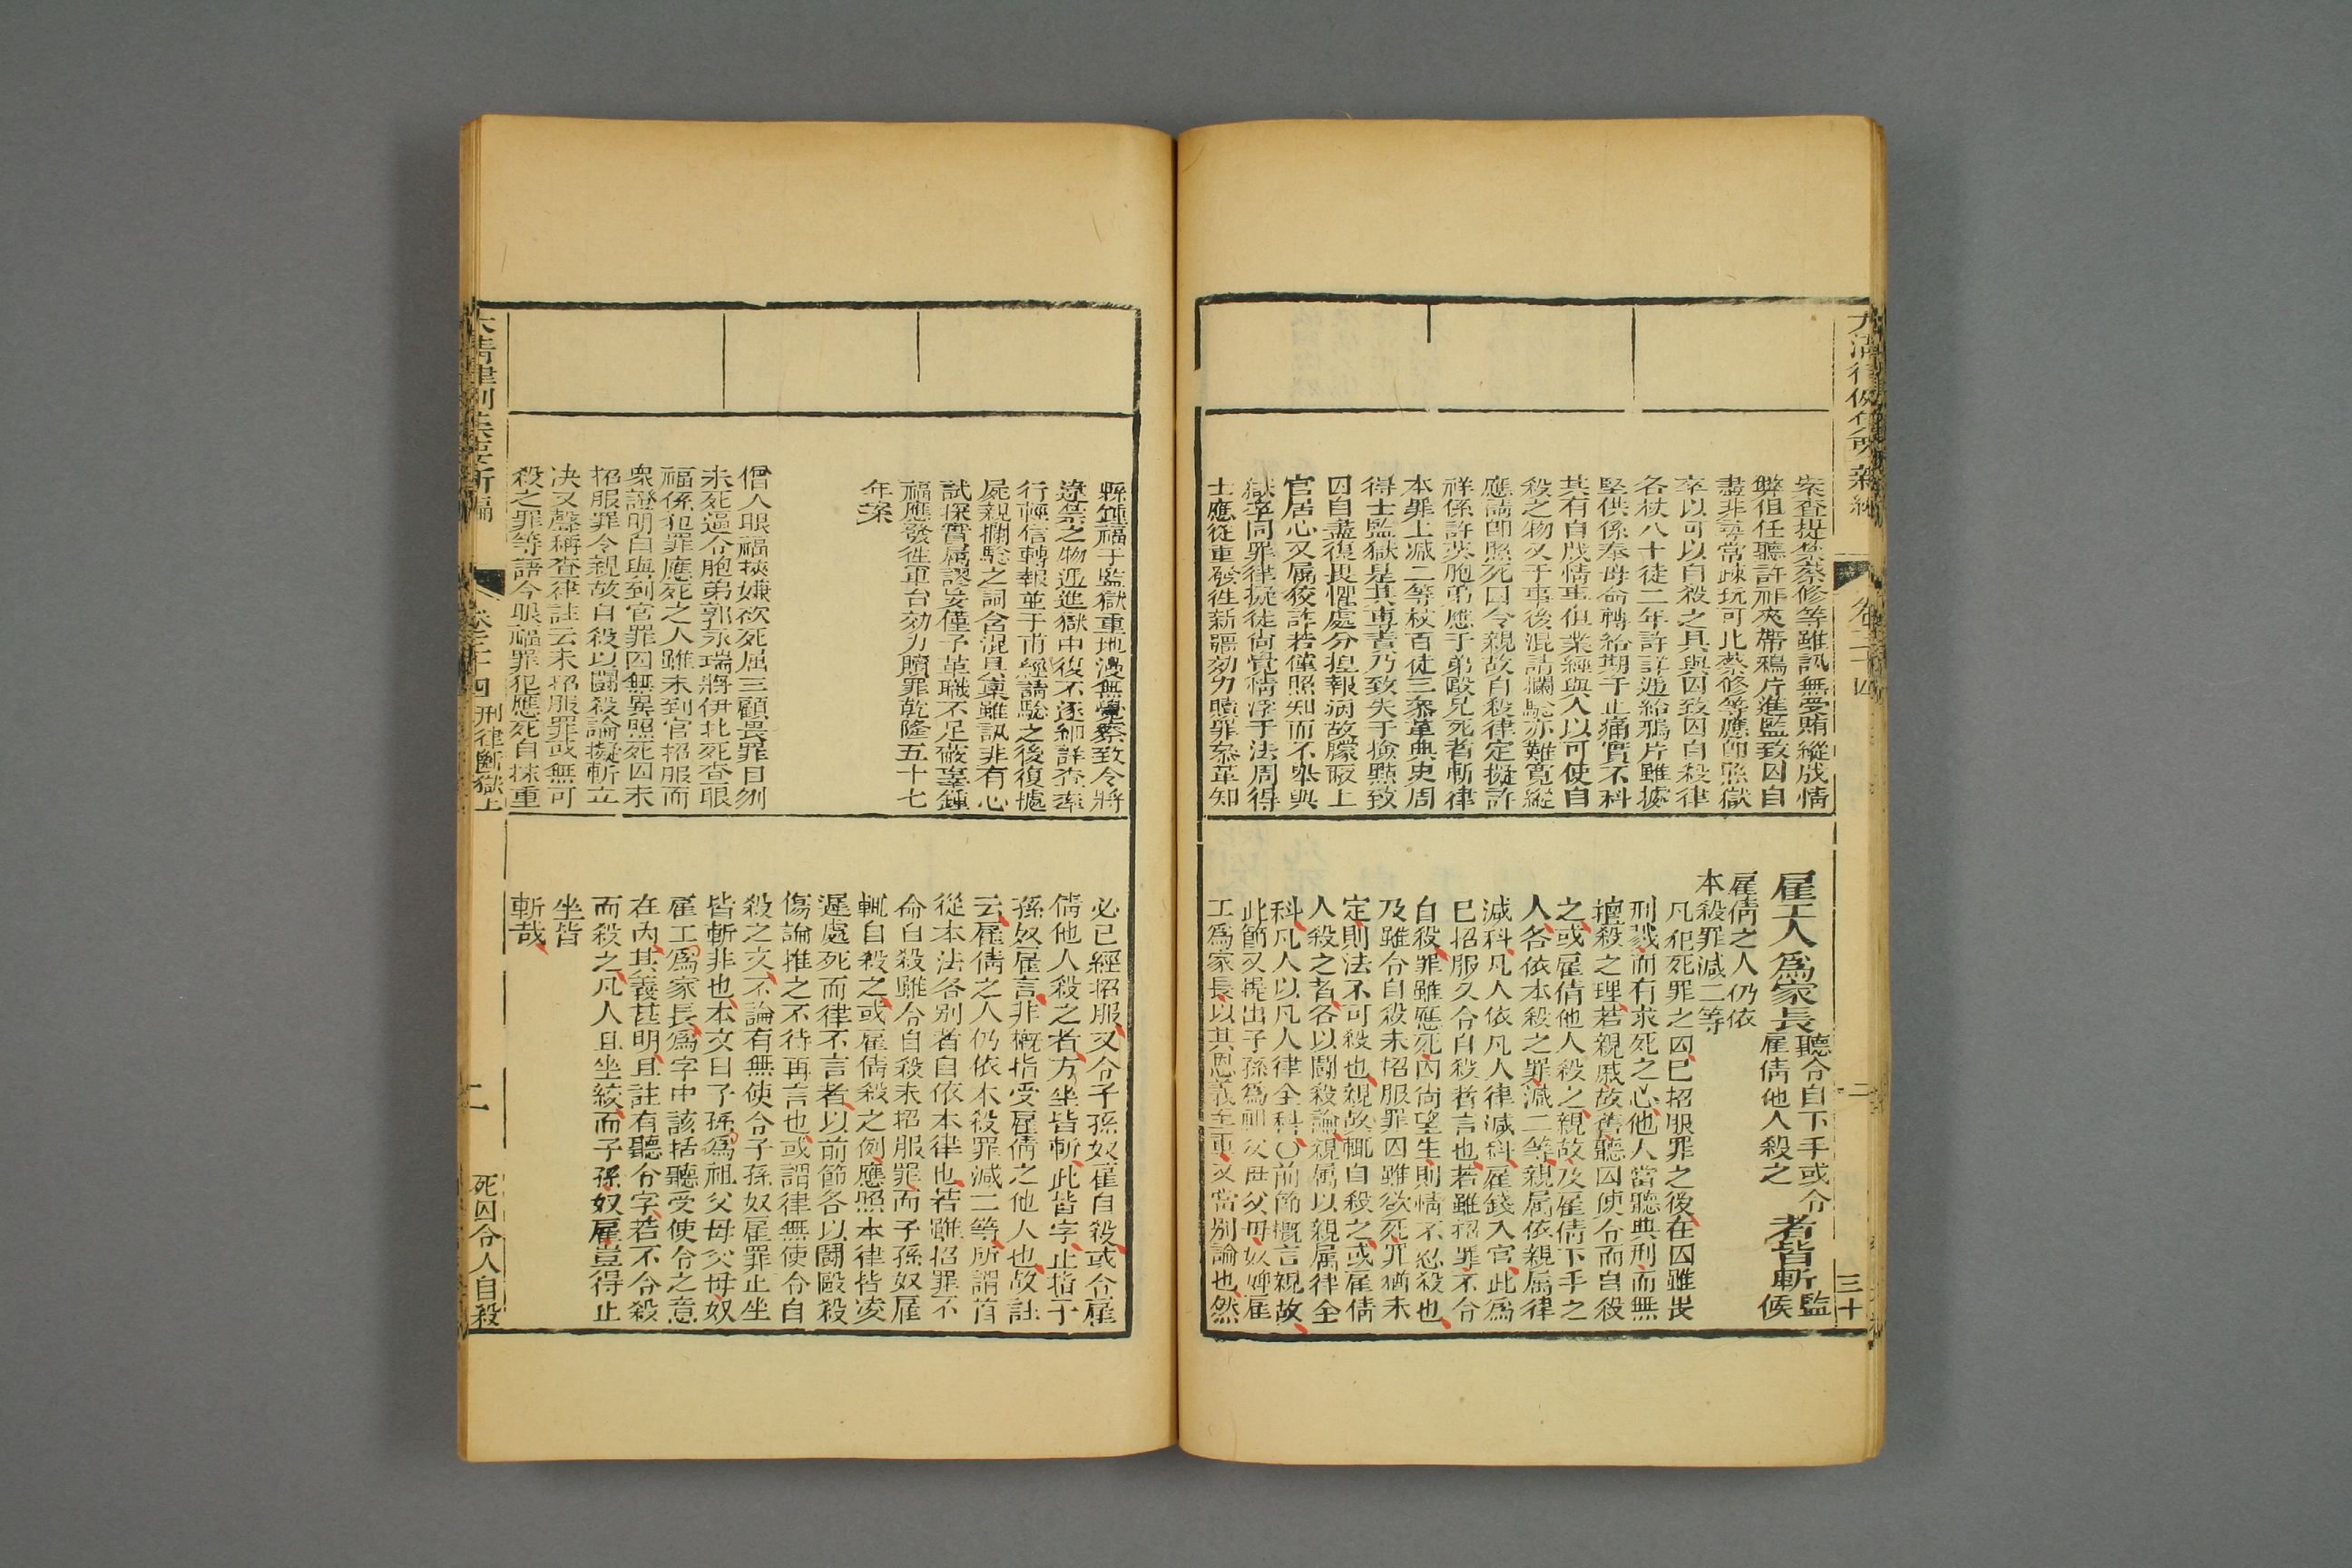 大清律例
卷二十四
三十
案查提禁蔡修等雖訊無受賄縱成情
弊但任聽許祥夾帶鴉片進監致囚自
盡非尋常疎玩可比蔡修等應卽照獄
卒以可以自殺之具與囚致囚自殺律
各杖八十徒二年許詳遞給鴉片雖據
堅供係奉母命轉給期于止痛實不科
其有自戕情事但業經與人以可使自
殺之物又于事後混請攔騐亦難寬縱
應請卽照死囚令親故自殺律定擬許
祥係許英胞弟應于弟毆兄死者斬律
本罪上減二等杖百徒三叅革典史周
得士監獄是其專責乃致失于撿點致
囚自盡復畏懼處分揑報病故朦蔽上
官居心又屬狡詐若僅照知而不舉與
獄卒同罪律擬徒尙覺情浮于法周得
士應從重發徃新疆効力贖罪叅革知
雇工人爲家長聽令自下手或令雇倩他人殺之者皆斬監候
雇倩之人仍依
本殺罪減二等
凡犯死罪之囚已招服罪之後在囚雖畏
刑戮而有求死之心他人當聽典刑而無
擅殺之理若親戚故舊聽囚使令而自殺
之或雇倩他人殺之親故及雇倩下手之
人各依本殺之罪減二等親屬依親屬律
減科凡人依凡人律減科雇錢入官此爲
已招服久令自殺者言也若雖招罪不令
自殺罪雖應死囚尙望生則情不忍殺也
及雖令自殺未招服罪囚雖欲死罪猶未
定則法不可殺也親故輒自殺之或雇倩
人殺之者各以鬬殺論親屬以親屬律全
科凡人以凡人律全科〇前節槪言親故
此節又提出子孫爲祖父母父母奴婢雇
工爲家長以其恩義至重又當別論也然
縣鍾福于監獄重地漫無覺察致令將
違禁之物遞進獄中復不逐細詳查率
行輕信轉報並于甫經請騐之後復據
屍親攔騐之詞含混具稟雖訊非有心
試探實屬謬妄僅予革職不足蔽辜鍾
福應發徃軍台効力贖罪乾隆五十七
年案
僧人眼福挾嫌砍死屈三顧畏罪自刎
未死逼令胞弟郭永瑞將伊扎死查眼
福係犯罪應死之人雖未到官招服而
衆證明白與到官罪囚無異照死囚未
招服罪令親故自殺以鬬殺論擬斬立
决又聲稱查律註云未招服罪或無可
殺之罪等語今眼福罪犯應死自抹重
必已經招服又令子孫奴雇自殺或令雇
倩他人殺之者方坐皆斬此皆字止指子
孫奴雇言非槪指受雇倩之他人也故註
云雇倩之人仍依本殺罪減二等所謂首
從本法各別者自依本律也若雖招罪不
命自殺雖令自殺未招服罪而子孫奴雇
輒自殺之或雇倩殺之例應照本律皆凌
遲處死而律不言者以前節各以鬬毆殺
傷論推之不待再言也或謂律無使令自
殺之文不論有無使令子孫奴雇罪止坐
皆斬非也本文曰子孫爲祖父母父母奴
雇工爲家長爲字中該括聽受使令之意
在內其義甚明且註有聽令字若不令殺
而殺之凡人且坐絞而子孫奴雇豈得止
坐皆
斬哉
大清律例
卷二十四 刑律斷獄上
二
死囚令人自殺